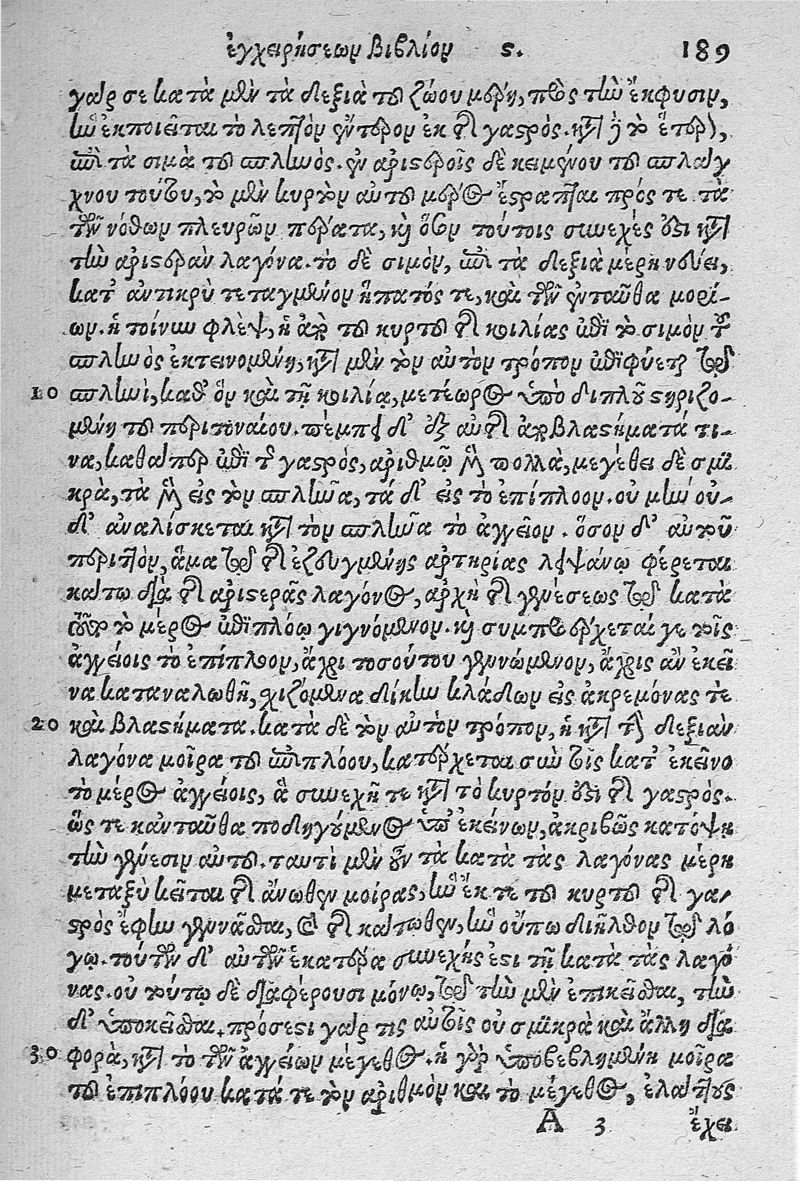 ἐγχειρήσεων βιβλίον ϛ. 189
γάρ σε κατὰ μὲν τὰ δεξιὰ τοῦ ζώου μέρη, πρὸς τὴν ἔκφυσιν,
ἣν ἐκποιεῖται τὸ λεπτὸν ἔντερον ἐκ τῆς γαστρός. κατὰ δὲ τὸ ἕτερον,
ἐπὶ τὰ σιμὰ τοῦ σπληνός. ἐν ἀριστεροῖς δὲ κειμένου τοῦ σπλάγ
χνου τούτου, τὸ μὲν κυρτὸν αὐτοῦ μέρος ἔστραπται πρός τε τὰ
τῶν νόθων πλευρῶν πέρατα, καὶ ὅσον τούτοις συνεχές ἐστι κατὰ
τὴν ἀριστερὰν λαγόνα. τὸ δὲ σιμὸν, ἐπὶ τὰ δεξιὰ μέρη νεύει,
κατ' ἀντικρὺ τεταγμένον ἥπατός τε, καὶ τῶν ἐνταῦθα μορί-
ων. ἡ τοίνυν φλὲψ, ἡ ἀπὸ τοῦ κυρτοῦ τῆς κοιλίας ἐπὶ τὸ σιμὸν τοῦ
σπληνὸς ἐκτεινομένη, κατὰ μὲν τὸν αὐτὸν τρόπον ἐπιφύεται τῷ
10 σπληνὶ, καθ' ὃν καὶ τῇ κοιλίᾳ, μετέωρος ὑπὸ διπλοῦ στηριζο-
μένη τοῦ περιτοναίου. πέμπει δ' ἐξ αὑτῆς ἀποβλαστήματά τι-
να, καθάπερ ἐπὶ τῆς γαστρὸς, ἀριθμῷ μὲν πολλὰ, μεγέθει δὲ σμι
κρὰ, τὰ μὲν εἰς τὸν σπλῆνα, τὰ δ' εἰς τὸ ἐπίπλοον. οὐ μὴν οὐ-
δ' ἀναλίσκεται κατὰ τὸν σπλῆνα τὸ ἀγγεῖον. ὅσον δ' αὐτοῦ
περιττὸν, ἅμα τῷ τῆς ἐζευγμένης ἀρτηρίας λειψάνῳ φέρεται
κάτω διὰ τῆς ἀριστερᾶς λαγόνος, ἀρχὴ τῆς γενέσεως τῷ κατὰ
τοῦτο τὸ μέρος ἐπιπλόῳ γιγνόμενον. καὶ συμπροέρχεταί γε τοῖς
ἀγγείοις τὸ ἐπίπλοον, ἄχρι τοσούτου γεννώμενον, ἄχρις ἂν ἐκεῖ
να καταναλωθῇ, σχιζόμενα δίκην κλάδων εἰς ἀκρεμόνας τὲ
20 καὶ βλαστήματα. κατὰ δὲ τὸν αὐτὸν τρόπον, ἡ κατὰ τὴν δεξιὰν
λαγόνα μοῖρα τοῦ ἐπιπλόου, κατέρχεται σὺν τοῖς κατ' ἐκεῖνο
τὸ μέρος ἀγγείοις, ἃ συνεχῆ τε κατὰ τὸ κυρτόν ἐστι τῆς γαστρὸς.
ὥς τε κἀνταῦθα ποδηγούμενος ὑπ' ἐκείνων, ἀκριβῶς κατόψῃ
τὴν γένεσιν αὐτοῦ. ταυτὶ μὲν οὖν τὰ κατὰ τὰς λαγόνας μέρη
μεταξὺ κεῖται τῆς ἄνωθεν μοίρας, ἣν ἔκ τε τοῦ κυρτοῦ τῆς γα-
στρὸς ἔφην γεννᾶσθαι, καὶ τῆς κάτωθεν, ἣν οὔπω διῆλθον τῷ λό
γῳ. τούτων δ' αὐτῶν ἑκατέρα συνεχής ἐστι τῇ κατὰ τὰς λαγό
νας. οὐ τούτῳ δὲ διαφέρουσι μόνῳ, τῷ τὴν μὲν ἐπικεῖσθαι, τὴν
δ' ὑποκεῖσθαι. πρόσεστι γάρ τις αὐταῖς οὐ σμικρὰ καὶ ἄλλη δια
30 φορὰ, κατὰ τὸ τῶν ἀγγείων μέγεθος. ἡ γὰρ ὑποβεβλημένη μοῖρα
τοῦ ἐπιπλόου κατά τε τὸν ἀριθμὸν καὶ τὸ μέγεθος, ἐλάττους
A 3 ἔχει